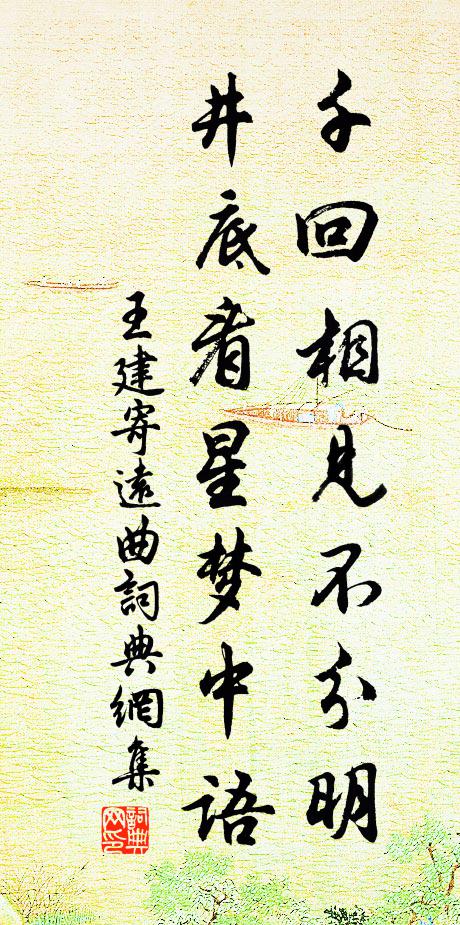 千回相見不分明
井底看星梦中語
王建寄遠曲詞典網集
詞典网印